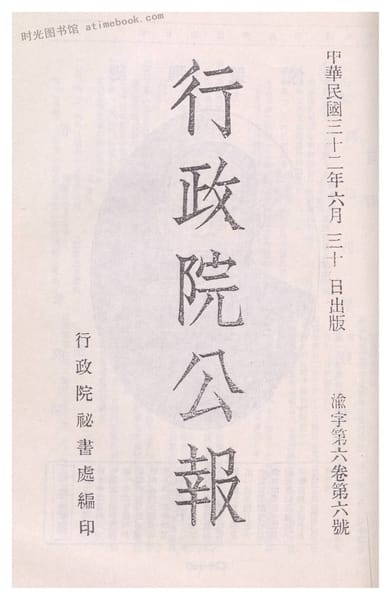 时光图书馆 atimebook.com
中華民國三十二年六月三十日出版 渝字第六卷第六號
行政院公報
行政院祕書處編印